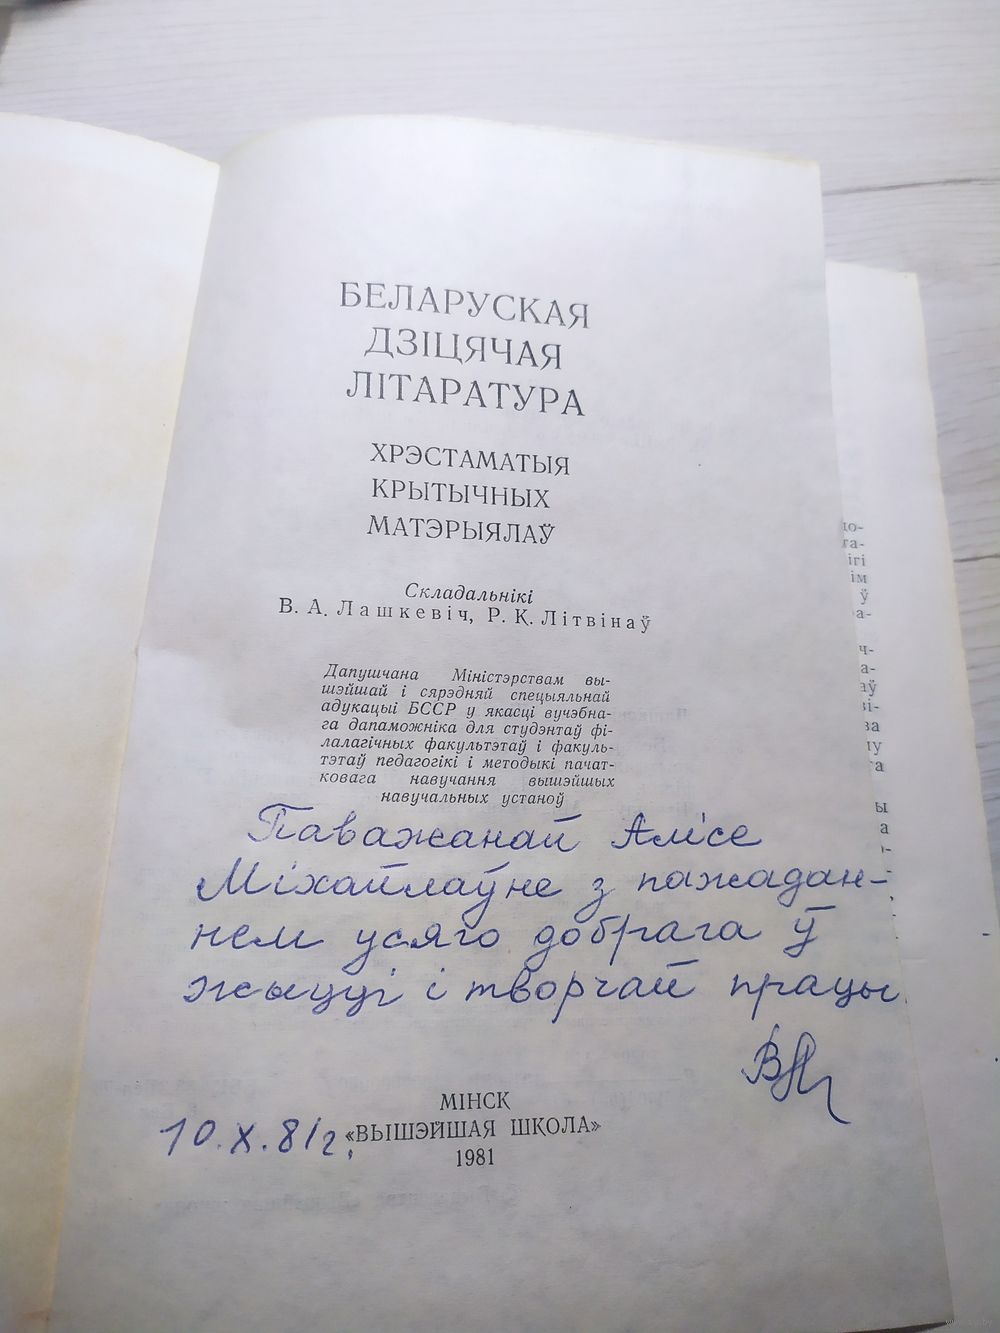 БЕЛАРУСКАЯ
ДЗІЦЯЧАЯ
ЛІТАРАТУРА
ХРЭСТАМАТЫЯ
КРЫТЫЧНЫХ
МАТЭРЫЯЛАЎ
Складальнікі
В. А. Лашкевіч, Р. К. Літвінаў
Дапушчана Міністэрствам вы-
шэйшай і сярэдняй спецыяльнай
адукацыі БССР у якасці вучэбна-
га дапаможніка для студэнтаў фі-
лалагічных факультэтаў і факуль-
тэтаў педагогікі і методыкі пачат-
ковага навучання вышэйшых
навучальных устаноў
Паважанай Алісе
Міхайлаўне з пажадан-
нем усяго добрага ў
жыцці і творчай працы
10.X.81г.
МІНСК
«ВЫШЭЙШАЯ ШКОЛА»
1981